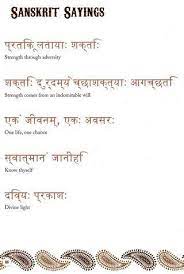 Sanskrit Sayings
प्रतिकूलतायाः शक्तिः
Strength through adversity
शक्तिः दुर्दम्येच्छाशक्त्याः आगच्छति
Strength comes from an indomitable will
एकं जीवनम्, एकः अवसरः
One life, one chance
स्वात्मानं जानीहि
Know thyself
दिव्यः प्रकाशः
Divine light